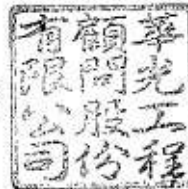 莘光工程
顧問股份
有限公司